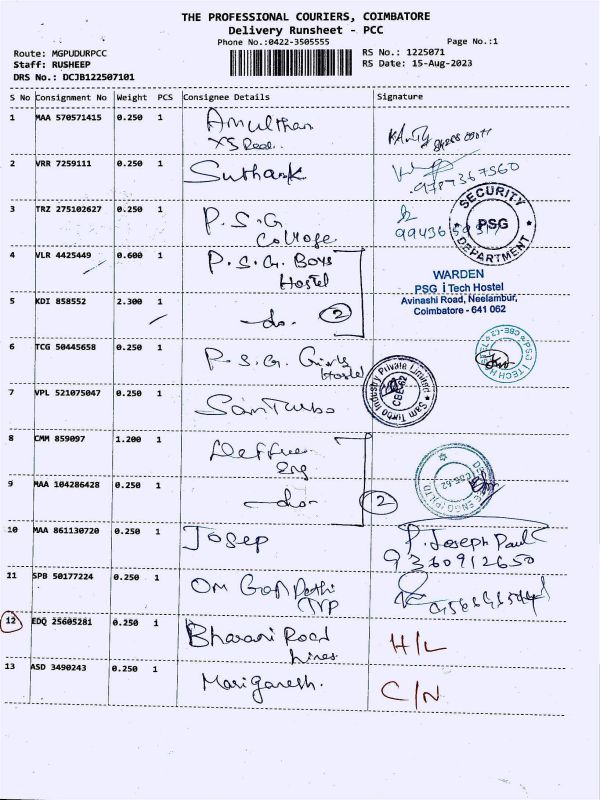 THE PROFESSIONAL COURIERS, COIMBATORE
Delivery Runsheet - PCC
Phone No.:0422-3505555 Page No.:1
Route: MGPUDURPCC RS No.: 1225071
Staff: RUSHEEP RS Date: 15-Aug-2023
DRS No.: DCJB122507101
S No Consignment No Weight PCS Consignee Details Signature
1 MAA 570571415 0.250 1
2 VRR 7259111 0.250 1 Suthark
9787367560
3 TRZ 275102627 0.250 1 P.S.G
College
SECURITY PSG DEPARTMENT
4 VLR 4425449 0.600 1 P.S.G. Boys
Hostel
WARDEN
PSG iTech Hostel
Avinashi Road, Neelambur,
Coimbatore - 641 062
5 KDI 858552 2.300 1 -do- 2
6 TCG 50445658 0.250 1 P.S.G. Girls
Hostel
7 VPL 521075047 0.250 1 Sam Turbo
Sam Turbo Industry Private Limited
CBE-62
8 CMM 859097 1.200 1
Eng
9 MAA 104286428 0.250 1 -do- 2
10 MAA 861130720 0.250 1 Josep P. Joseph Paul
9360912650
11 SPB 50177224 0.250 1 Om
TVP
12 EDQ 25605281 0.250 1 Bharani Road H/L
lines
13 ASD 3490243 0.250 1 Mariganesh. C/N